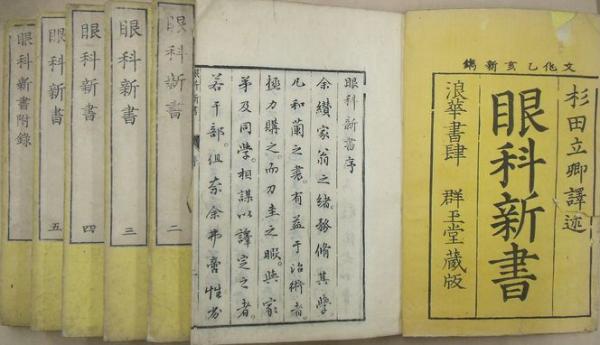 文化乙亥新鐫
杉田立卿譯述
眼科新書
浪華書肆 群玉堂藏版
眼科新書序
余纘家翁之緒。務脩其學
凡和蘭之書。有益于治術者。
極力購之。而刀圭之暇。與家
弟及同學。相謀以譯定之者。
若干部。但奈余弗啻性劣
眼科新書 序
眼科新書 二
眼科新書 三
眼科新書 四
眼科新書 五
眼科新書附錄